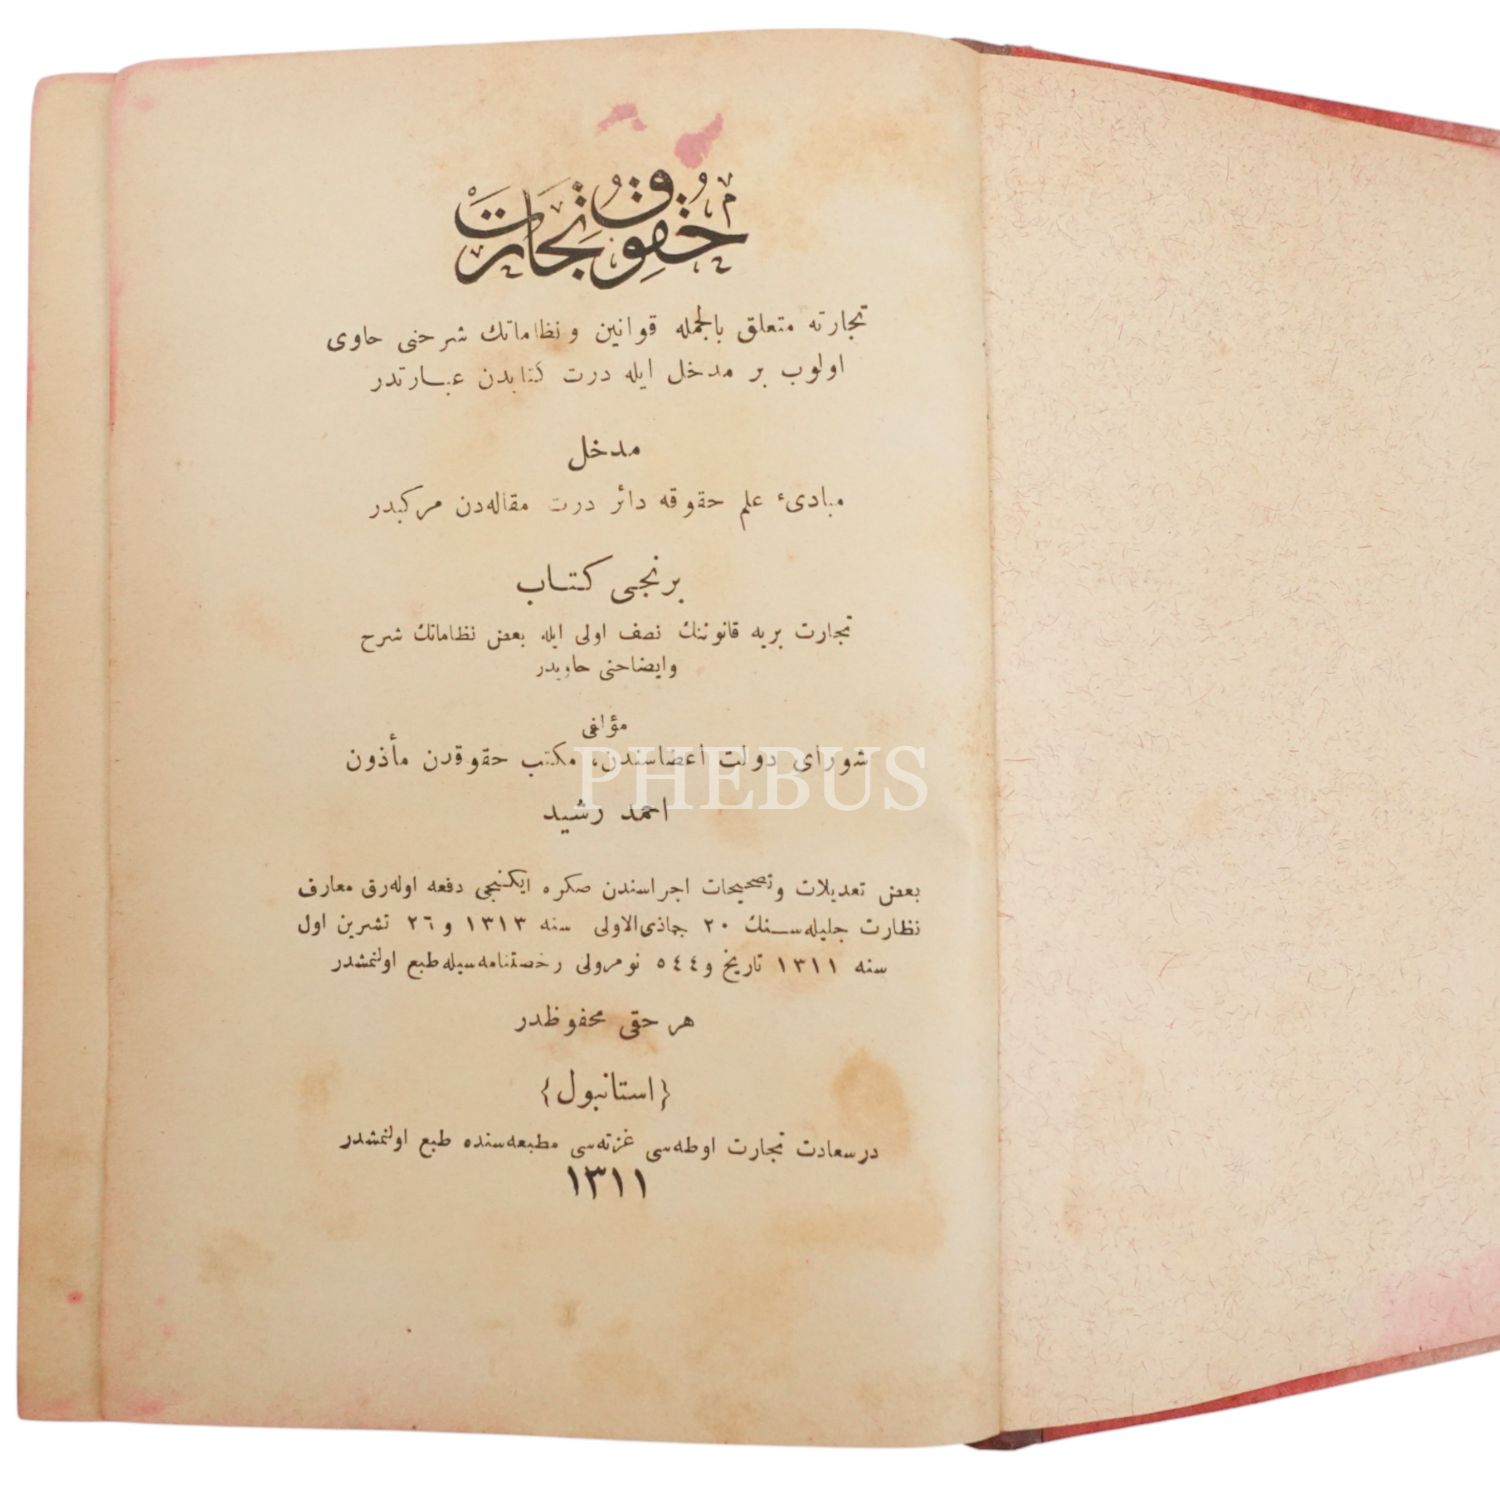 حقوق تجارت
تجارته متعلق بالجمله قوانین و نظاماتك شرحنی حاوی
اولوب بر مدخل ایله درت كتابدن عبارتدر
مدخل
مبادیء علم حقوقه دائر درت مقاله‌دن مركبدر
برنجی كتاب
تجارت بریه قانوننك نصف اولی ایله بعض نظاماتك شرح
وایضاحنی حاویدر
مؤلفی
شورای دولت اعضاسندن، مكتب حقوقدن مأذون
احمد رشید
بعض تعدیلات وتصحیحات اجراسندن صكره ایكنجی دفعه اوله‌رق معارف
نظارت جلیله‌سنك ٢٠ جماذی‌الاولی سنه ١٣١٣ و ٢٦ تشرین اول
سنه ١٣١١ تاریخ و ٥٤٤ نومرولی رخصتنامه‌سیله طبع اولنمشدر
هر حقی محفوظدر
{استانبول}
درسعادت تجارت اوطه‌سی غزته‌سی مطبعه‌سنده طبع اولنمشدر
١٣١١
PHEBUS